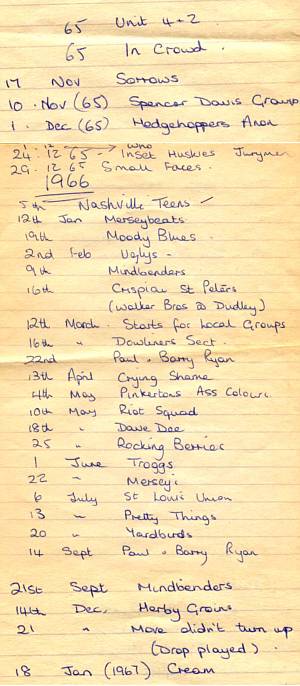 65 Unit 4+2
65 In Crowd.
17 Nov Sorrows
10. Nov (65) Spencer Davis Group
1. Dec (65) Hedgehoppers Anon
24. 12 65 → Who Inset Huskies Jurymen
29. 12 65 Small Faces.
1966
5th Nashville Teens
12th Jan Merseybeats
19th Moody Blues.
2nd Feb Uglys -
9th Mindbenders
16th Crispian St Peters
(Walker Bros @ Dudley)
12th March. Starts for Local Groups
16th " Downliners Sect.
22nd Paul & Barry Ryan
13th April Crying Shame
4th May Pinkertons Ass Colours.
10th May Riot Squad
18th " Dave Dee
25 " Rocking Berries
1 June Troggs
22 " Merseys
6 July St Louis Union
13 " Pretty Things
20 " Yardbirds
14 Sept Paul & Barry Ryan
21st Sept Mindbenders
14th Dec. Herby Groins
21 " Move didn't turn up
(Drop played).
18 Jan (1967) Cream